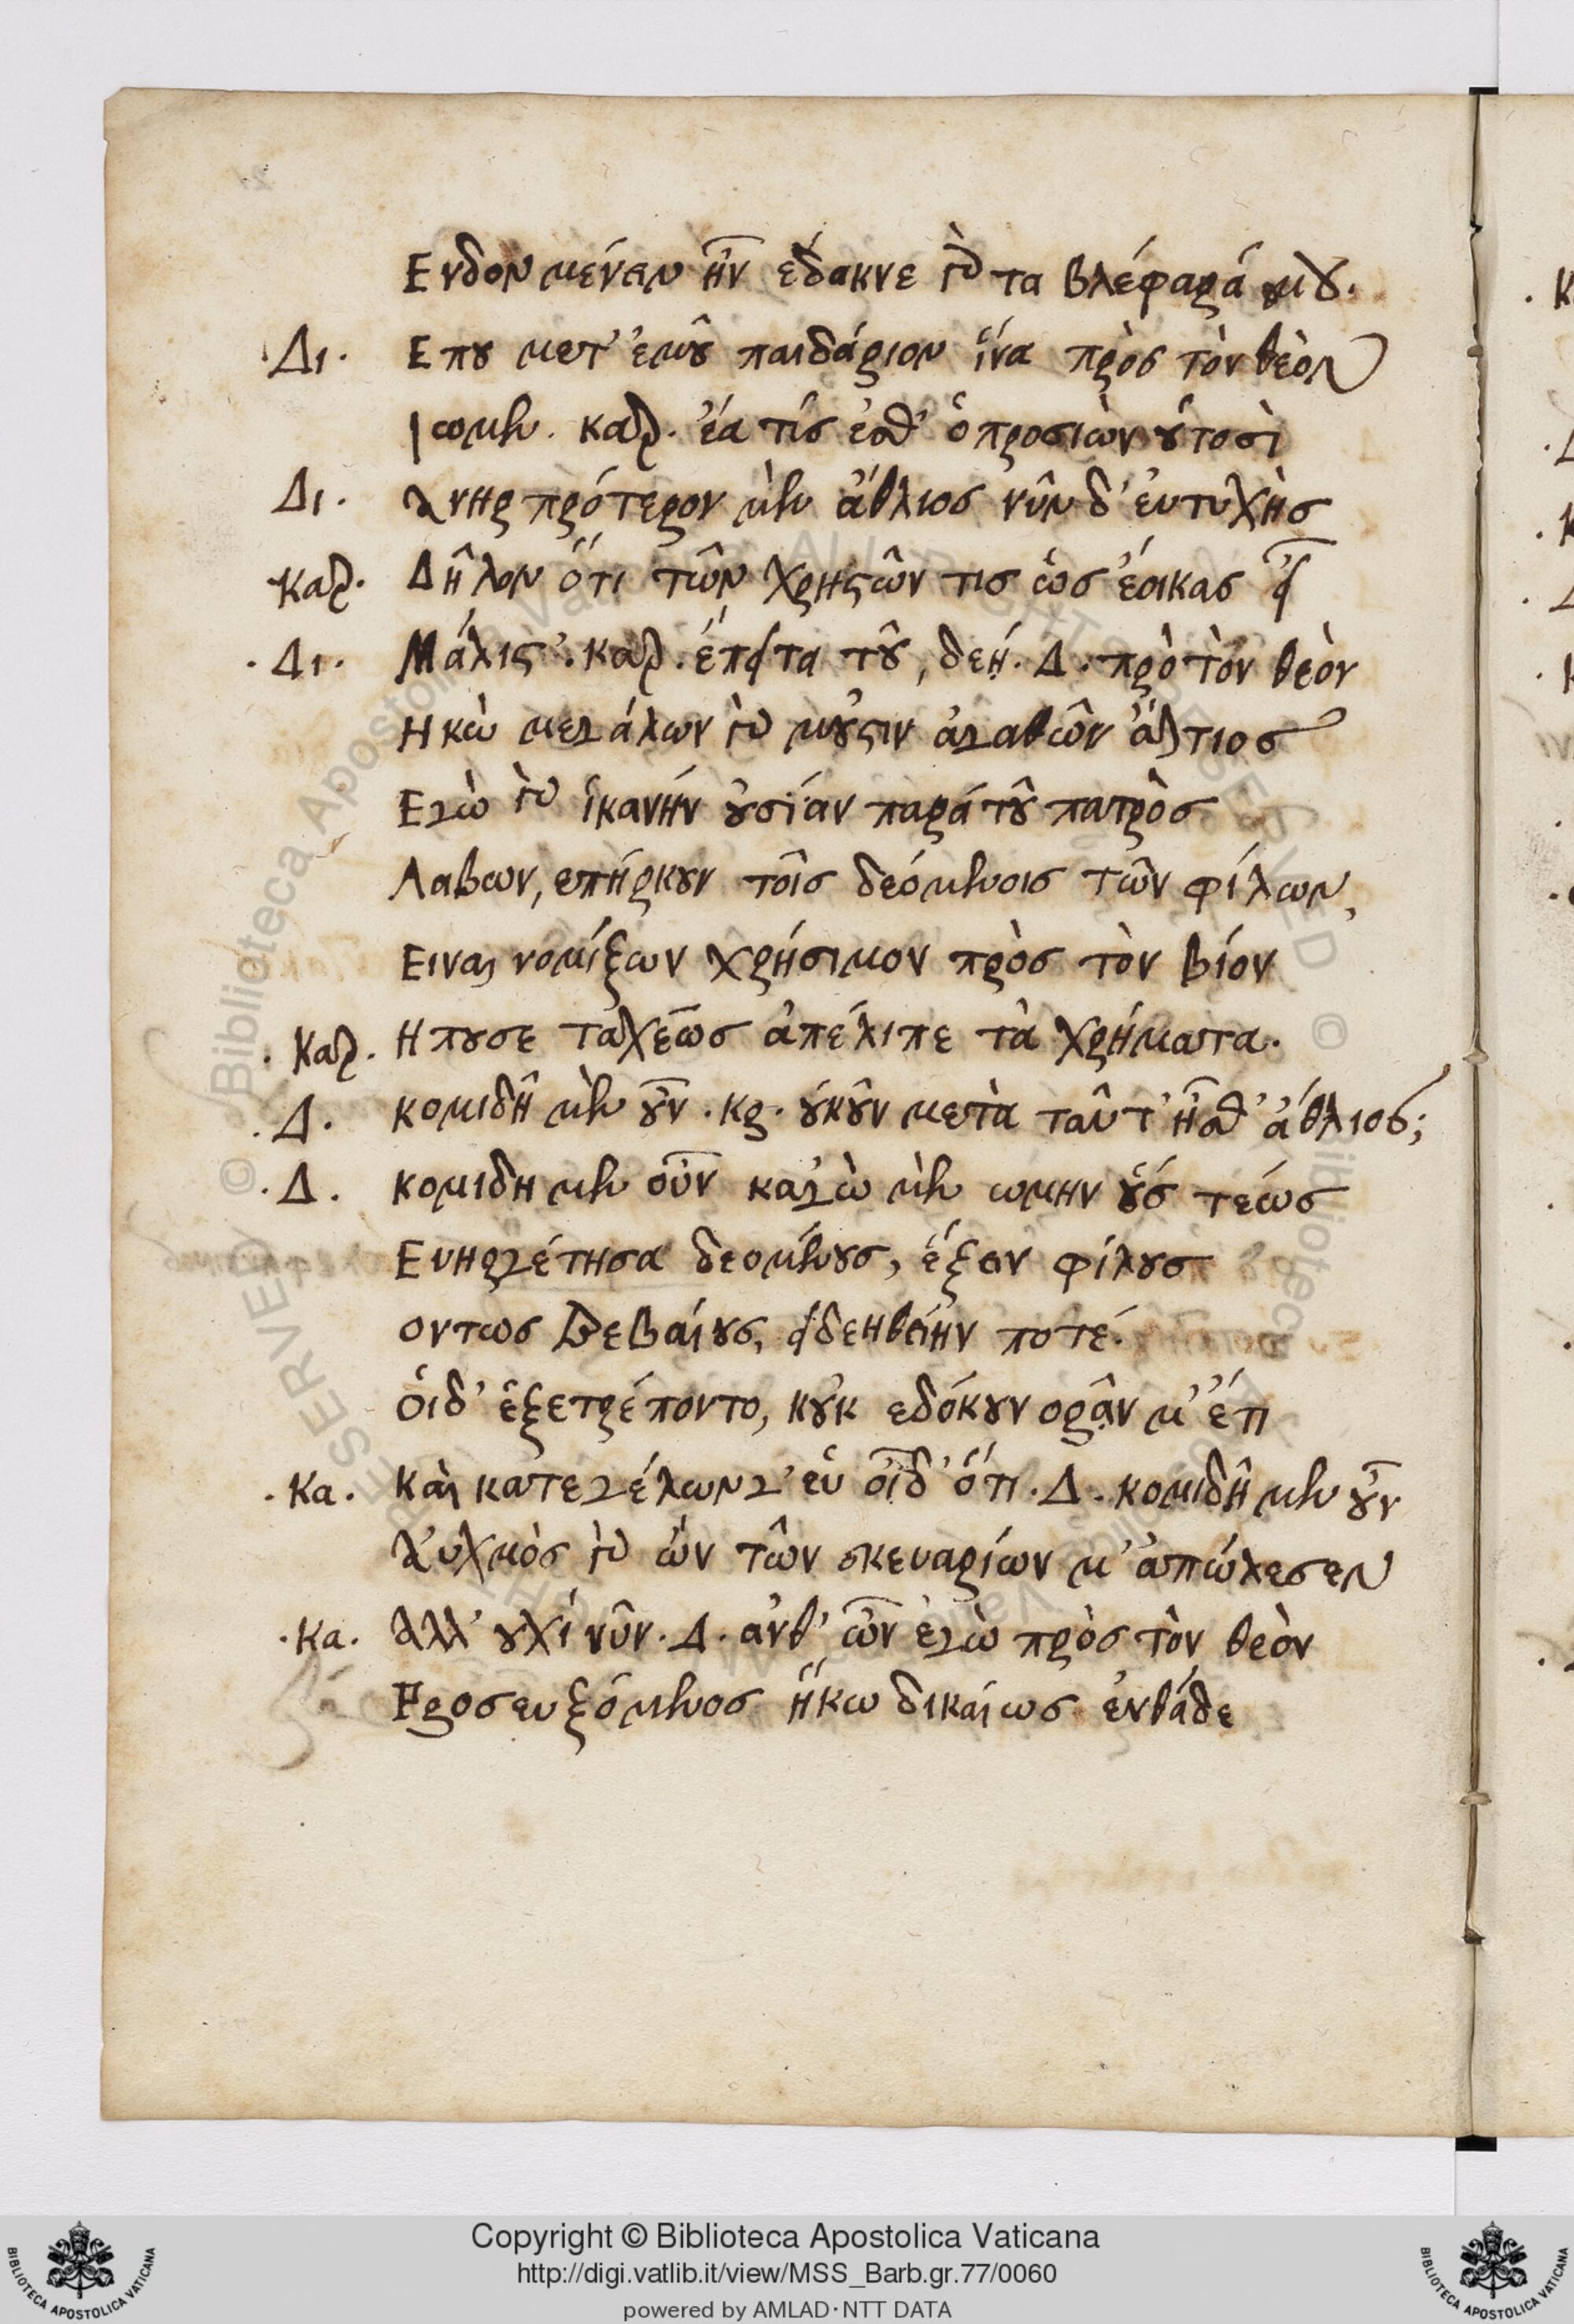 Ενδον μένειν ἦν ἔδακνε γὰρ τα βλέφαρά μου.
·Δι· Επου μετ' ἐμοῦ παιδάριον ἵνα πρὸς τὸν θεὸν
ἰωμεν. καρ. ἔα τίς ἐσθ' ὁ προσιὼν οὑτοσὶ
Δι· Ανηρ πρότερον μὲν ἄθλιος νῦν δ' ἐυτυχὴς
καρ. Δῆλον ὅτι τῶν χρηςῶν τισ ὡς ἔοικας εἶ
·Δι· Μάλις'. καρ. ἔπειτα τοῦ, δέη. Δ. πρὸ τὸν θεὸν
Ηκὼ μεγάλων γὰρ μοὐςιν ἀγαθῶν ἄιτιος
Εγὼ γὰρ ἱκανήν ὀυσίαν παρά τοῦ πατρὸς
Λαβων, επήρκουν τοῖς δεόμενοις τῶν φίλων,
Ειναι νομίξων χρήσιμον πρὸς τὸν βίον
·Καρ. Η πουσε ταχέως ἀπέλιπε τὰ χρήματα.
·Δ. κομιδῆ μὲν οὖν. κρ. όυκοῦν μετὰ ταῦτ' ἦσθ' ἄθλιος;
·Δ. κομιδη μεν οὖν καγὼ μὲν ωμην οὕς τέως
Ευηργέτησα δεομένους, ἕξειν φίλους
οντως βεβαίους, ει δεηθείην ποτέ.
ὁιδ' ἐξετρέποντο, κοὐκ εδόκουν ορᾶν μ' ἔτι
·Κα. Καὶ κατεγέλωνγ' ἐυ οἶδ' ὅτι. Δ. κομιδῆ μεν οὖν
Αὐχμὸς γὰρ ὢν τῶν σκευαρίων μ' ἀπώλεσεν
·Κα. Αλλ' ουχί νῦν. Δ. ἀνθ' ὧν ἐγὼ πρὸς τὸν θεὸν
Προσευξόμενος ἥκω δικαίως ἐνθάδε
Copyright © Biblioteca Apostolica Vaticana
http://digi.vatlib.it/view/MSS_Barb.gr.77/0060
powered by AMLAD·NTT DATA